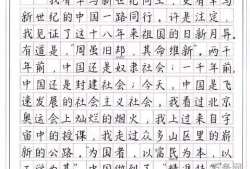 我有幸与新世纪同生，更有幸与
新世纪的中国一路同行。许是注定，
我见证了这十八年来祖国的日新月异。
有道是，"周虽旧邦，其命维新"，两千
年前，中国还是奴隶社会；一千年前，
中国还是封建社会；今天，中国是飞
速发展的社会主义社会，我看过北京
奥运会上灿烂的烟火，我上过来自宇
宙中的授课，我走过众多山区里的崭
新的公路。为国者，以富民为本，以